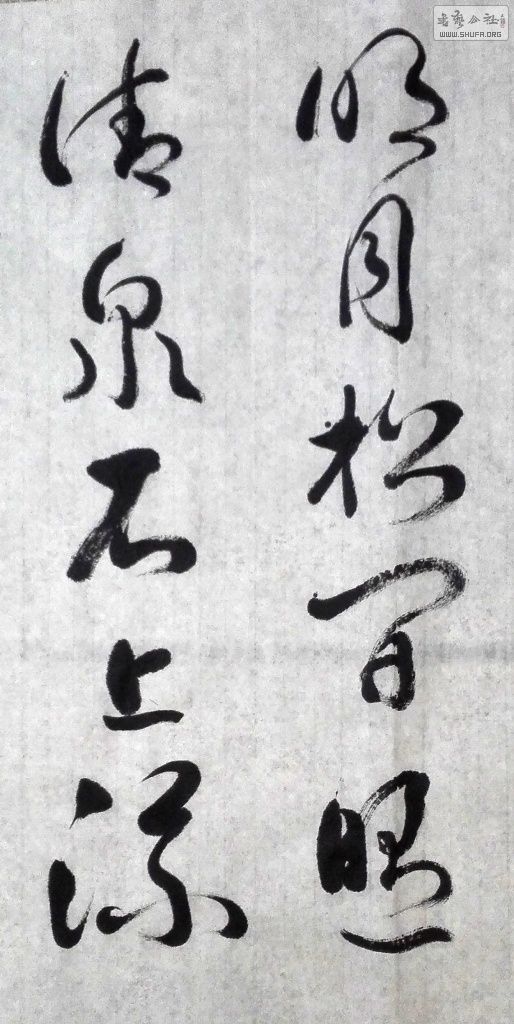 明月松间照
清泉石上流
書法公社
WWW.SHUFA.ORG